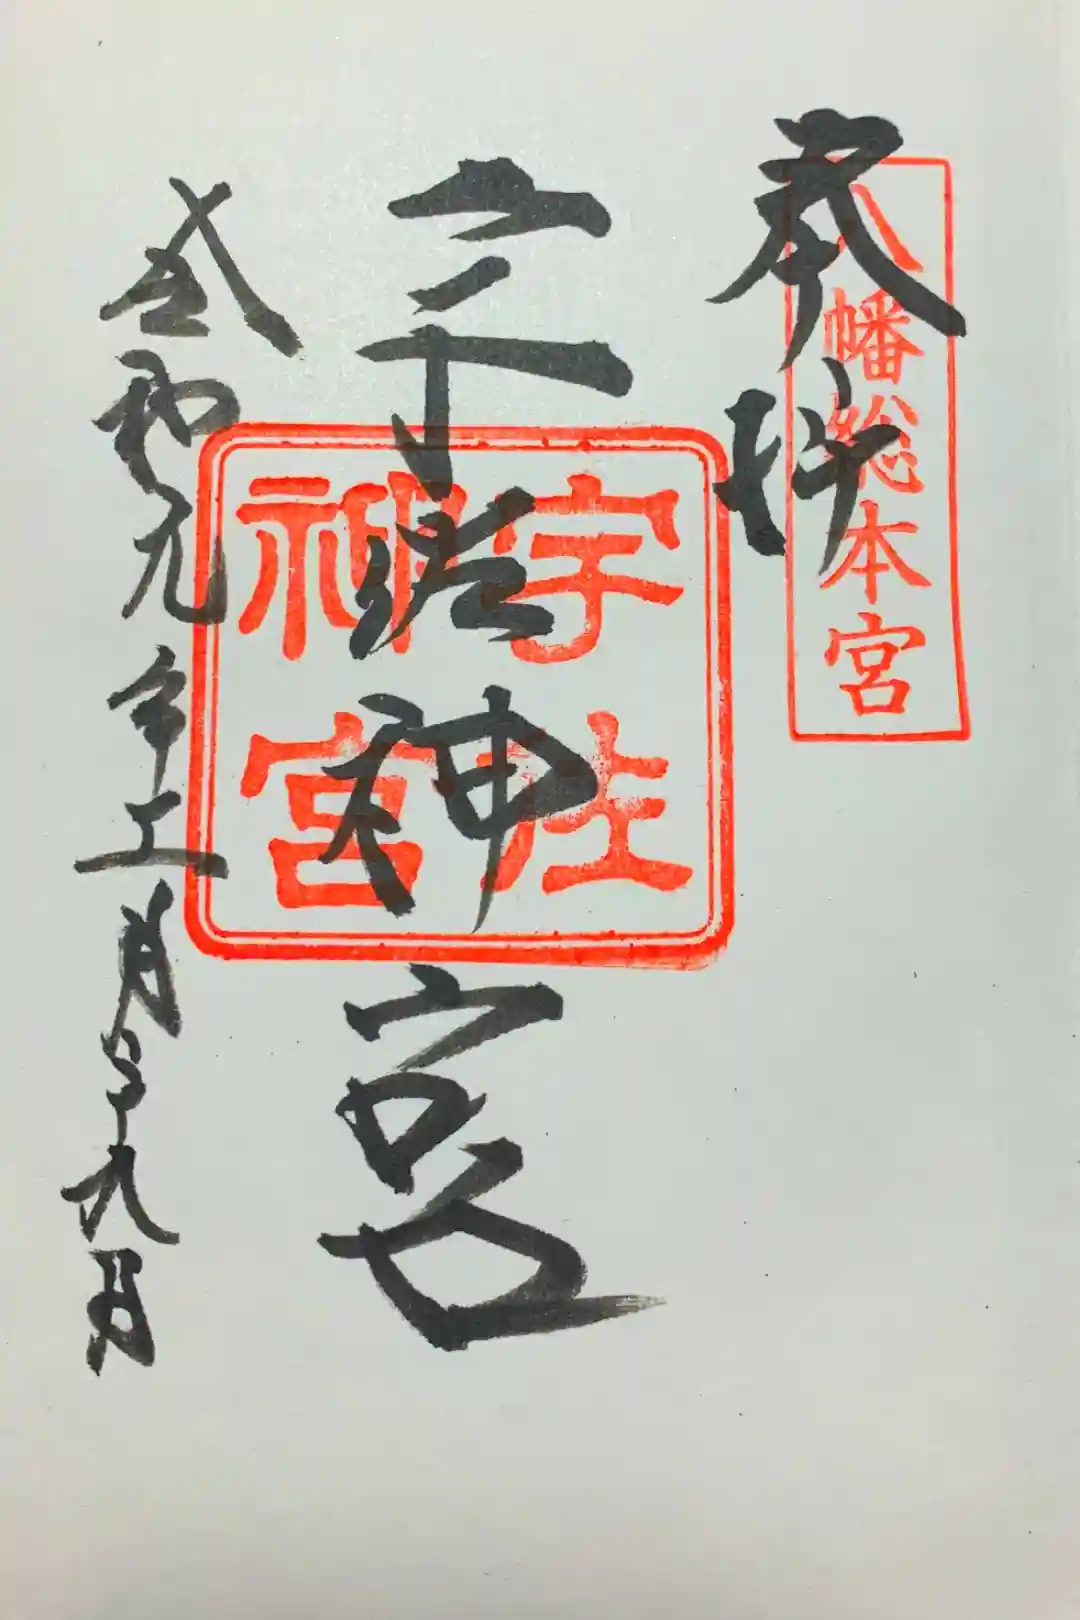 奉拝
八幡総本宮
宇佐神宮
宇佐神宮
令和元年 月 九日